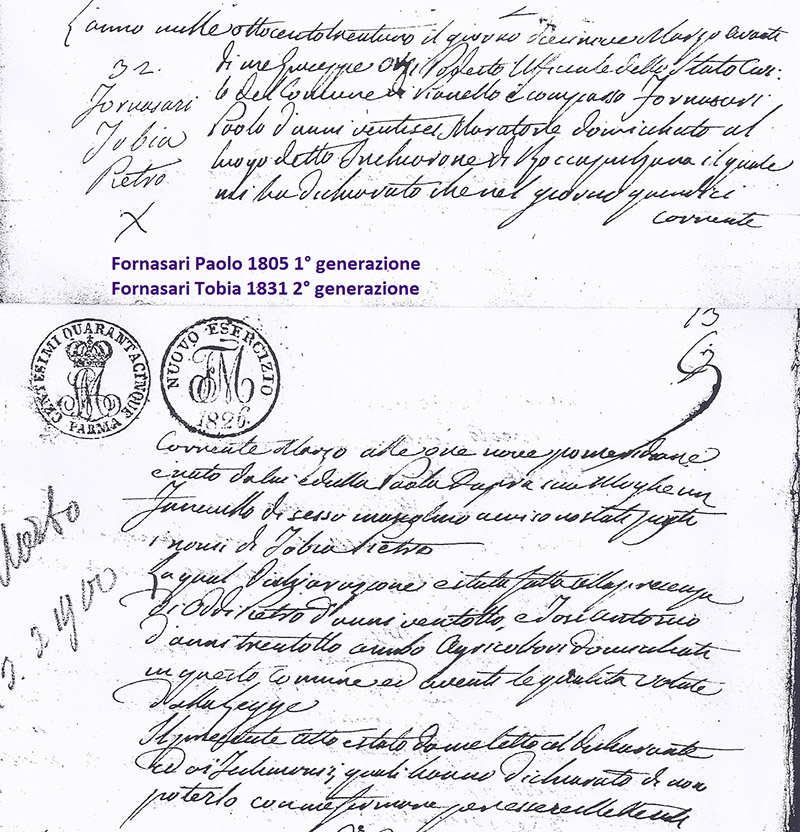 L'anno mille ottocentotrentuno il giorno diecinove Marzo avanti
di me Giuseppe Podestà Uffiziale dello Stato Civi-
le del Comune di Vianello è comparso Fornasari
Paolo d'anni ventisei Muratore domiciliato al
luogo detto di Roccapulzana il quale
mi ha dichiarato che nel giorno quindici
corrente
32.
Fornasari
Tobia
Pietro
X
Fornasari Paolo 1805 1° generazione
Fornasari Tobia 1831 2° generazione
CENTESIMI QUARANTACINQUE
PARMA
NUOVO ESERCIZIO
1826.
13
corrente Marzo alle ore nove pomeridiane
è nato da lui e dalla Paola sua Moglie un
Fanciullo di sesso mascolino a cui sono stati
i nomi di Tobia Pietro
La qual dichiarazione è stata fatta alla presenza
di Oddi Pietro d'anni ventotto, e Antonio
d'anni trentotto ambo Agricoltori domiciliati
in questo Comune ed aventi le qualità volute
dalla Legge
Il presente atto è stato da me letto al dichiarante
ed ai Testimoni, quali hanno dichiarato di non
poterlo con me firmare per essere
Morto
3. 2 1900